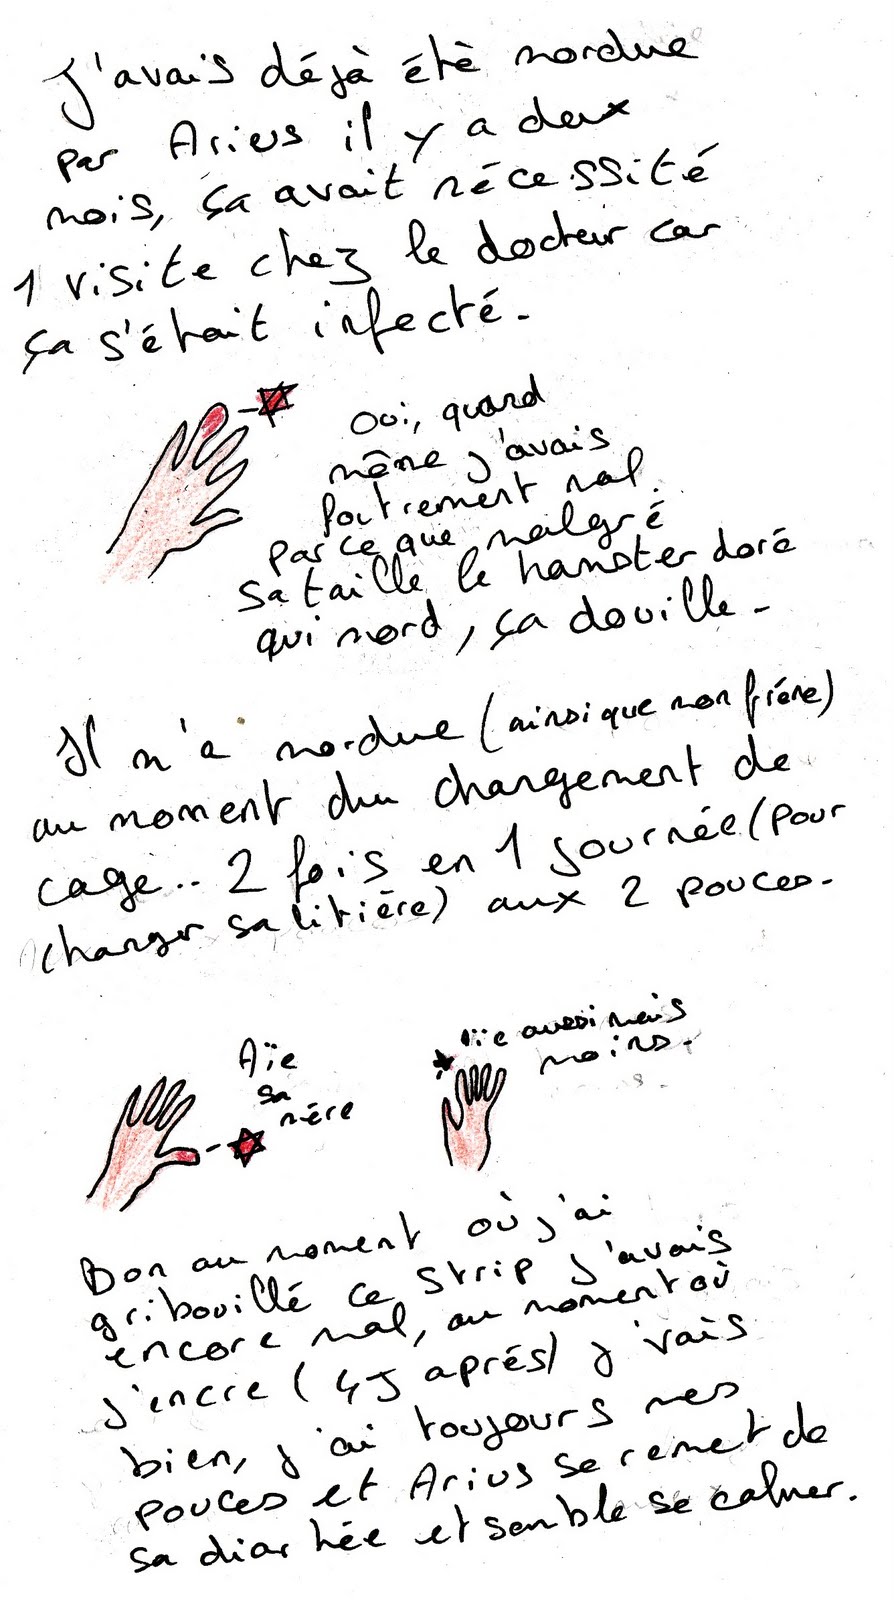 J'avais déjà étè mordue
par Arius il y a deux
mois, ça avait nécessité
1 visite chez le docteur car
ça s'était infecté.
Oui, quand
même j'avais
foutrement mal
parce que malgré
sa taille le hamster doré
qui mord, ça douille.
Il m'a mordue (ainsi que mon frére)
au moment du changement de
cage.. 2 fois en 1 journée (pour
changer sa litiére) aux 2 pouces.
Aïe
sa
mére
Aïe aussi mais
moins.
Bon au moment où j'ai
gribouillé ce strip j'avais
encore mal, au moment où
j'encre (4J aprés) j'vais
bien, j'ai toujours mes
pouces et Arius se remet de
sa diarhée et semble se calmer.